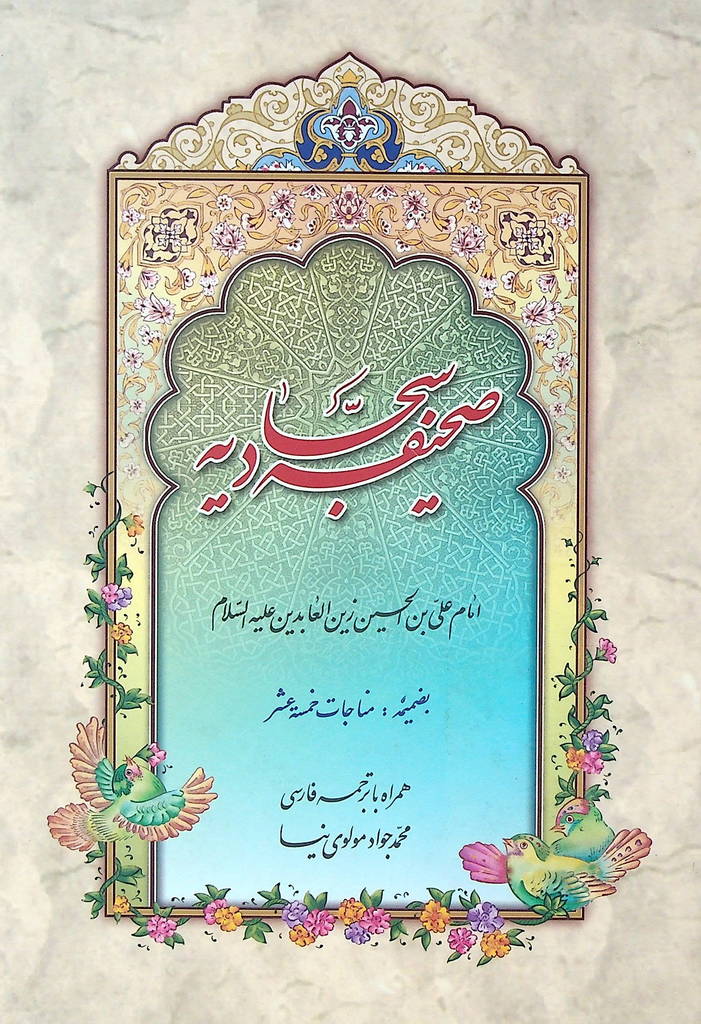 صحیفه سجادیه
امام علیّ بن الحسین زین العابدین علیه السّلام
بضمیمهٔ : مناجات خمسة عشر
همراه با ترجمه فارسی
محمّد جواد مولوی نیا